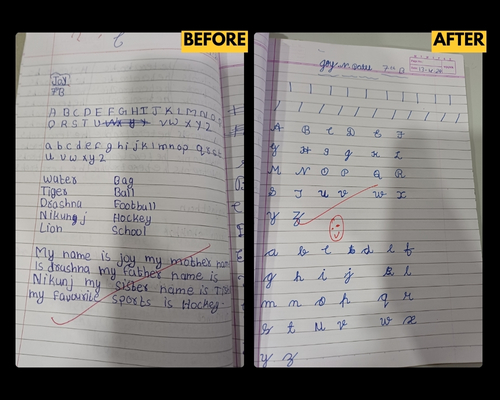 BEFORE
Joy
7B
A B C D E F G H I J K L M N O
Q R S T U V W X Y Z
a b c d e f g h i j k l m n o p q r s t
u v w x y z
Water Bag
Tiger Ball
Drashna Football
Nikunj Hockey
Lion School
My name is joy my mother nam
is drashna my father name is
Nikunj my sister name is
my favourite sports is Hockey.
AFTER
7th B
A B C D E F
G H I J K L
M N O P Q R
S T U V W X
Y Z
a b c d e f
g h i j k l
m n o p q r
s t u v w x
y z